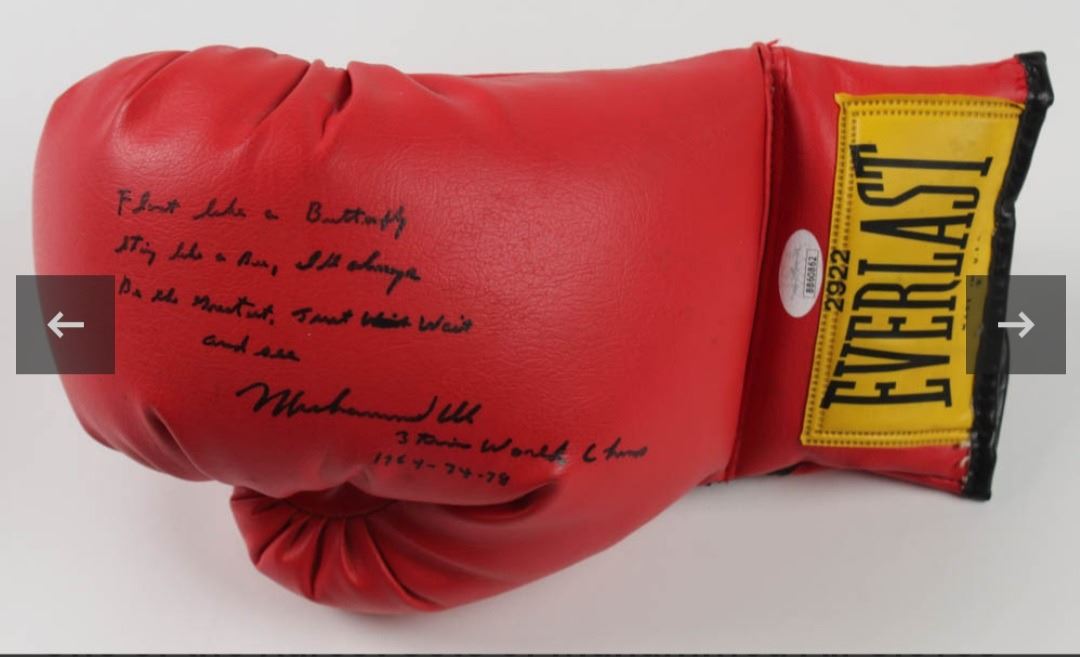 Float like a Butterfly
Sting like a Bee, I'll always
Be the Greatest, Just Wait Wait
and see
Muhammad Ali
3 Time World Champ
1964-74-78
BB60862
2922
EVERLAST